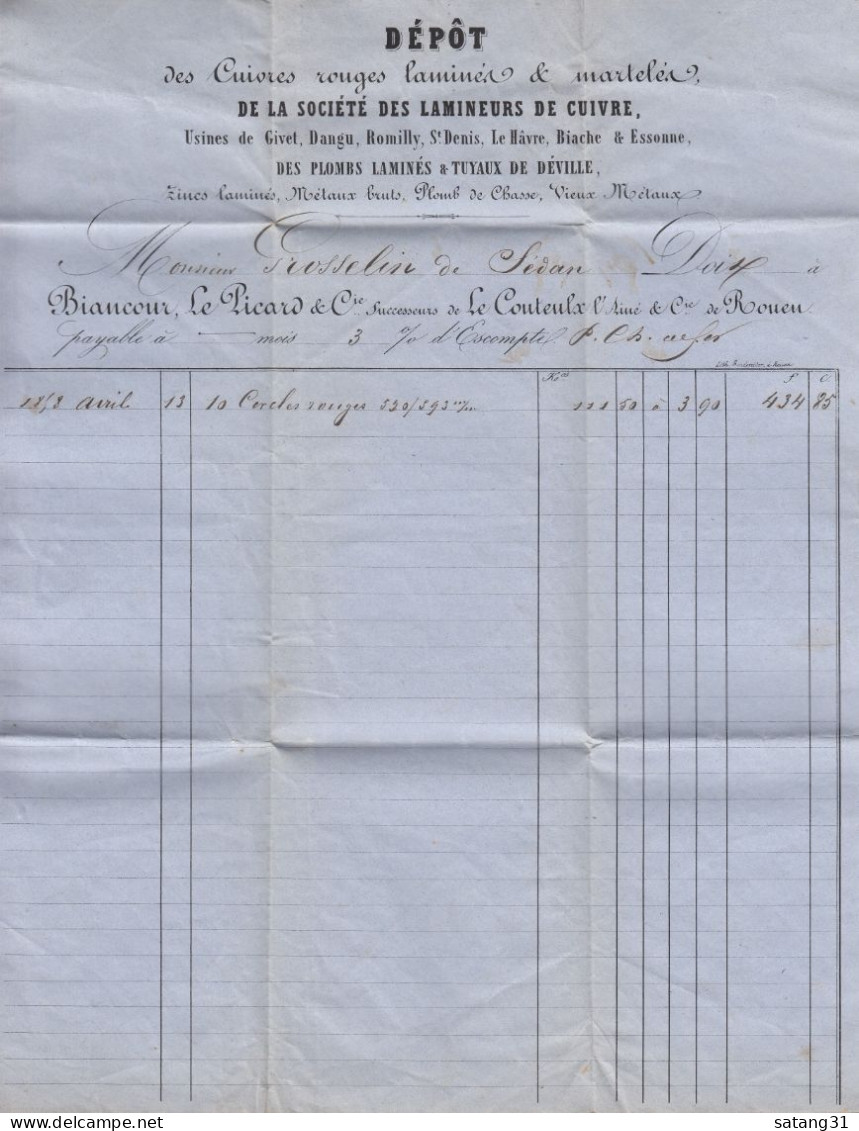 DÉPÔT
des Cuivres rouges laminés & martelés,
DE LA SOCIÉTÉ DES LAMINEURS DE CUIVRE,
Usines de Givet, Dangu, Romilly, St Denis, Le Hâvre, Biache & Essonne,
DES PLOMBS LAMINÉS & TUYAUX DE DÉVILLE,
Zincs laminés, Métaux bruts, Plomb de Chasse, Vieux Métaux
Monsieur Grosselin de Sédan Doit à
Biancour, Le Picard & Cie Successeurs de Le Couteulx l'Aîné & Cie de Rouen
payable à mois 3 % d'Escompte P. Ch. de fer
Kos f c
1858 avril 13 10 Cercles rouges 530/595 m/m 111 50 à 3 90 434 85
delcampe.net
satang31